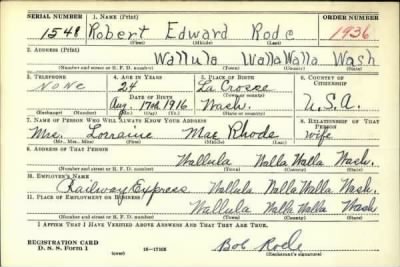 SERIAL NUMBER 1. NAME (Print) ORDER NUMBER
1548 Robert Edward Rode 1936
(First) (Middle) (Last)
2. ADDRESS (Print)
Wallula Walla Walla Wash
(Number and street or R. F. D. number) (Town) (County) (State)
3. TELEPHONE 4. AGE IN YEARS 5. PLACE OF BIRTH 6. COUNTRY OF CITIZENSHIP
None 24 La Crosse
DATE OF BIRTH (Town or county)
Aug. 17th, 1916 Wash. U.S.A.
(Exchange) (Number) (Mo.) (Day) (Yr.) (State or country)
7. NAME OF PERSON WHO WILL ALWAYS KNOW YOUR ADDRESS 8. RELATIONSHIP OF THAT PERSON
Mrs. Lorraine Mae Rhode wife
(Mr., Mrs., Miss) (First) (Middle) (Last)
9. ADDRESS OF THAT PERSON
Wallula Walla Walla Wash.
(Number and street or R. F. D. number) (Town) (County) (State)
10. EMPLOYER'S NAME
Railway Express Wallula Walla Walla Wash.
11. PLACE OF EMPLOYMENT OR BUSINESS
Wallula Walla Walla Wash
(Number and street or R. F. D. number) (Town) (County) (State)
I AFFIRM THAT I HAVE VERIFIED ABOVE ANSWERS AND THAT THEY ARE TRUE.
REGISTRATION CARD
D. S. S. Form 1 (over) 16-17105 Bob Rode
(Registrant's signature)